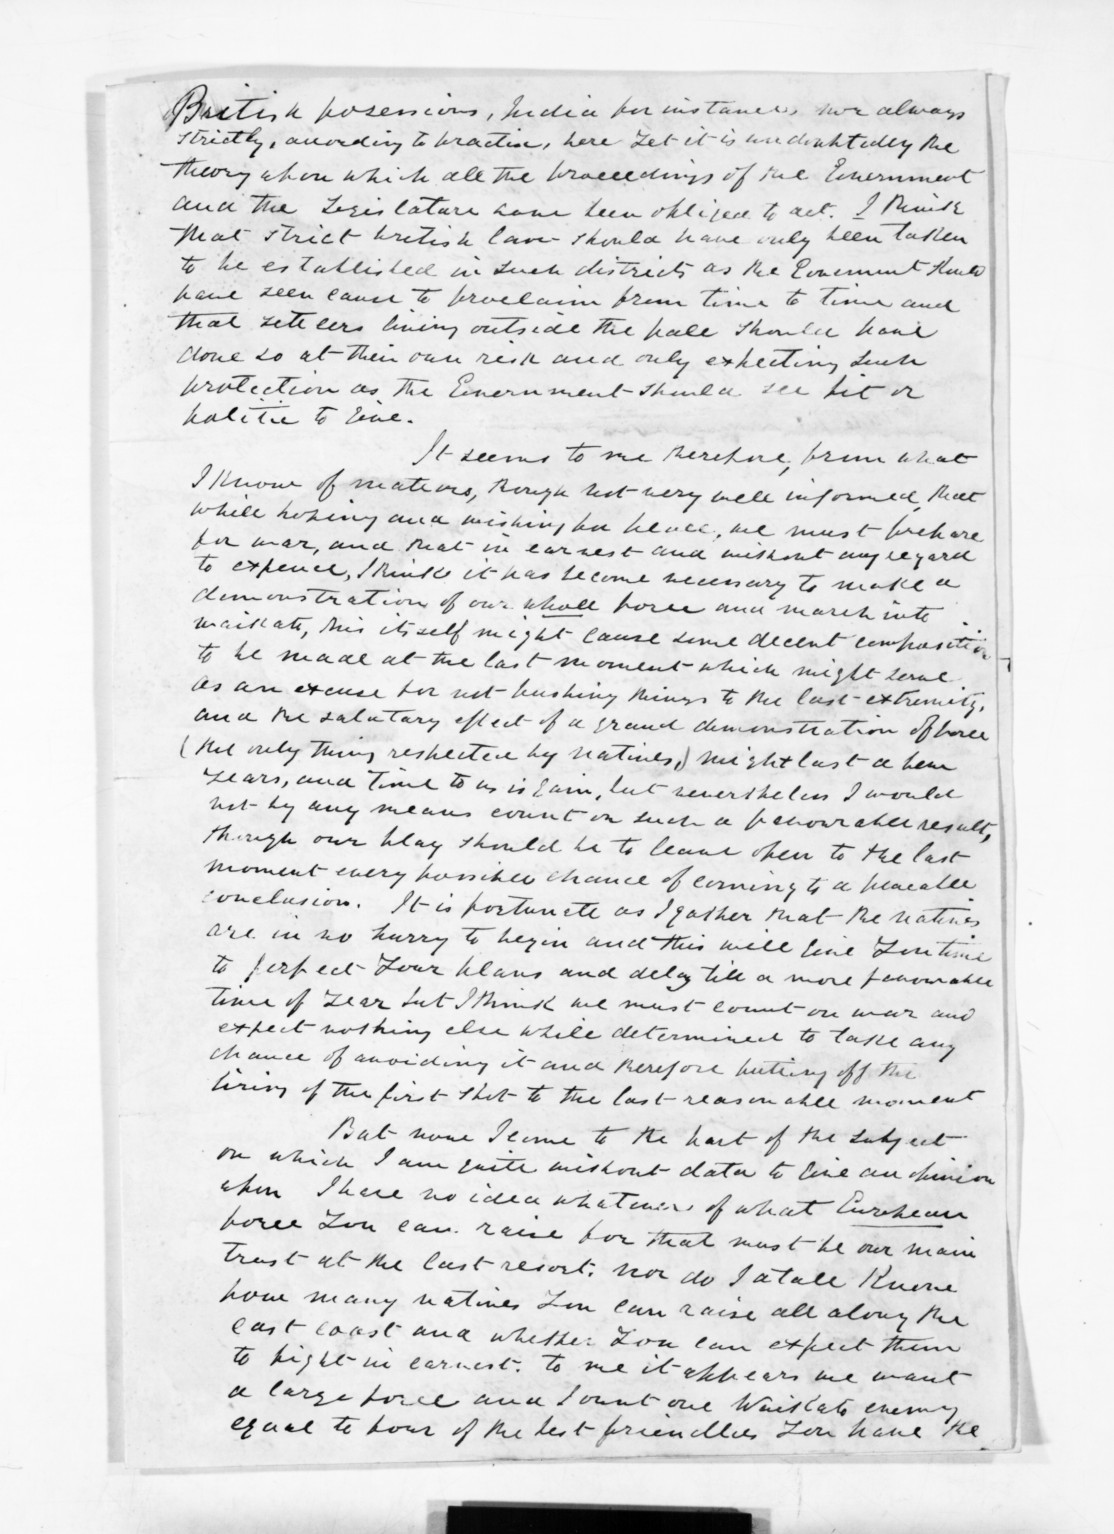 British possessions, India for instance, nor always
strictly, according to practise, here yet it is undoubtedly the
theory upon which all the proceedings of the Government
and the Legislature have been obliged to act. I think
that strict british law should have only been taken
to be established in such districts as the Government should
have seen cause to proclaim from time to time and
that settlers living outside the pale should have
done so at their own risk and only expecting such
protection as the Government should see fit or
politic to give.
It seems to me therefore, from what
I know of matters, though not very well informed, that
while hoping and wishing for peace, we must prepare
for war, and that in earnest and without any regard
to expence, I think it has become necessary to make a
demonstration of our whole force and march into
Waikato, this itself might cause some decent composition
to be made at the last moment which might serve
as an excuse for not pushing things to the last extremity,
and the salutary effect of a grand demonstration of force
(the only thing respected by natives,) might last a few
years, and time to us is gain, but nevertheless I would
not by any means count on such a favourable result,
though our play should be to leave open to the last
moment every possible chance of coming to a peacable
conclusion. It is fortunate as I gather that the natives
are in no hurry to begin and this will give you time
to perfect your plans and delay till a more favourable
time of year but I think we must count on war and
expect nothing else while determined to take any
chance of avoiding it and therefore putting off the
firing of the first shot to the last reasonable moment
But now I come to the part of the subject
on which I am quite without data to give an opinion
upon I have no idea whatever of what European
force you can raise for that must be our main
trust at the last resort. nor do I at all know
how many natives you can raise all along the
east coast and whether you can expect them
to fight in earnest. to me it appears we want
a large force and I count one Waikato enemy
equal to four of the best friendlies you have the